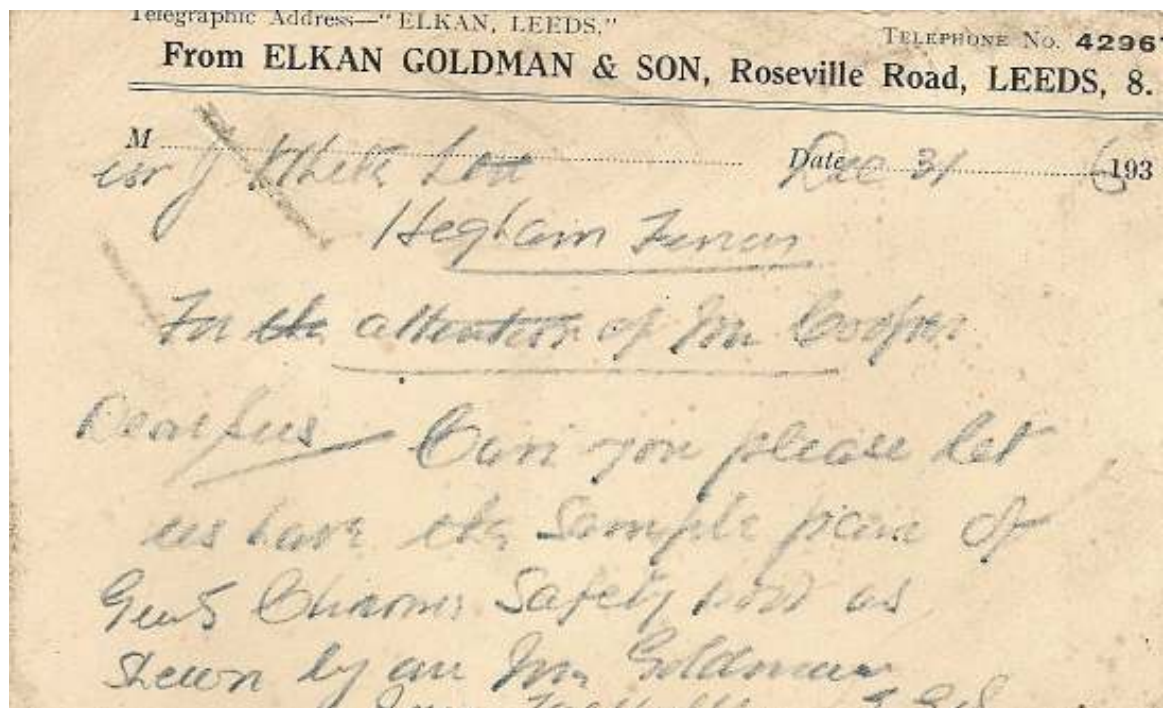 Telegraphic Address—"ELKAN, LEEDS."
TELEPHONE NO. 42961
From ELKAN GOLDMAN & SON, Roseville Road, LEEDS, 8.
M Date Dec 31 1936
J White Ltd
Higham Ferrers
For the attention of Mr Cooper
Dear Sirs Can you please let
us have the Sample pair of
Gents Chrome Safety boot as
shewn by our Mr Goldman